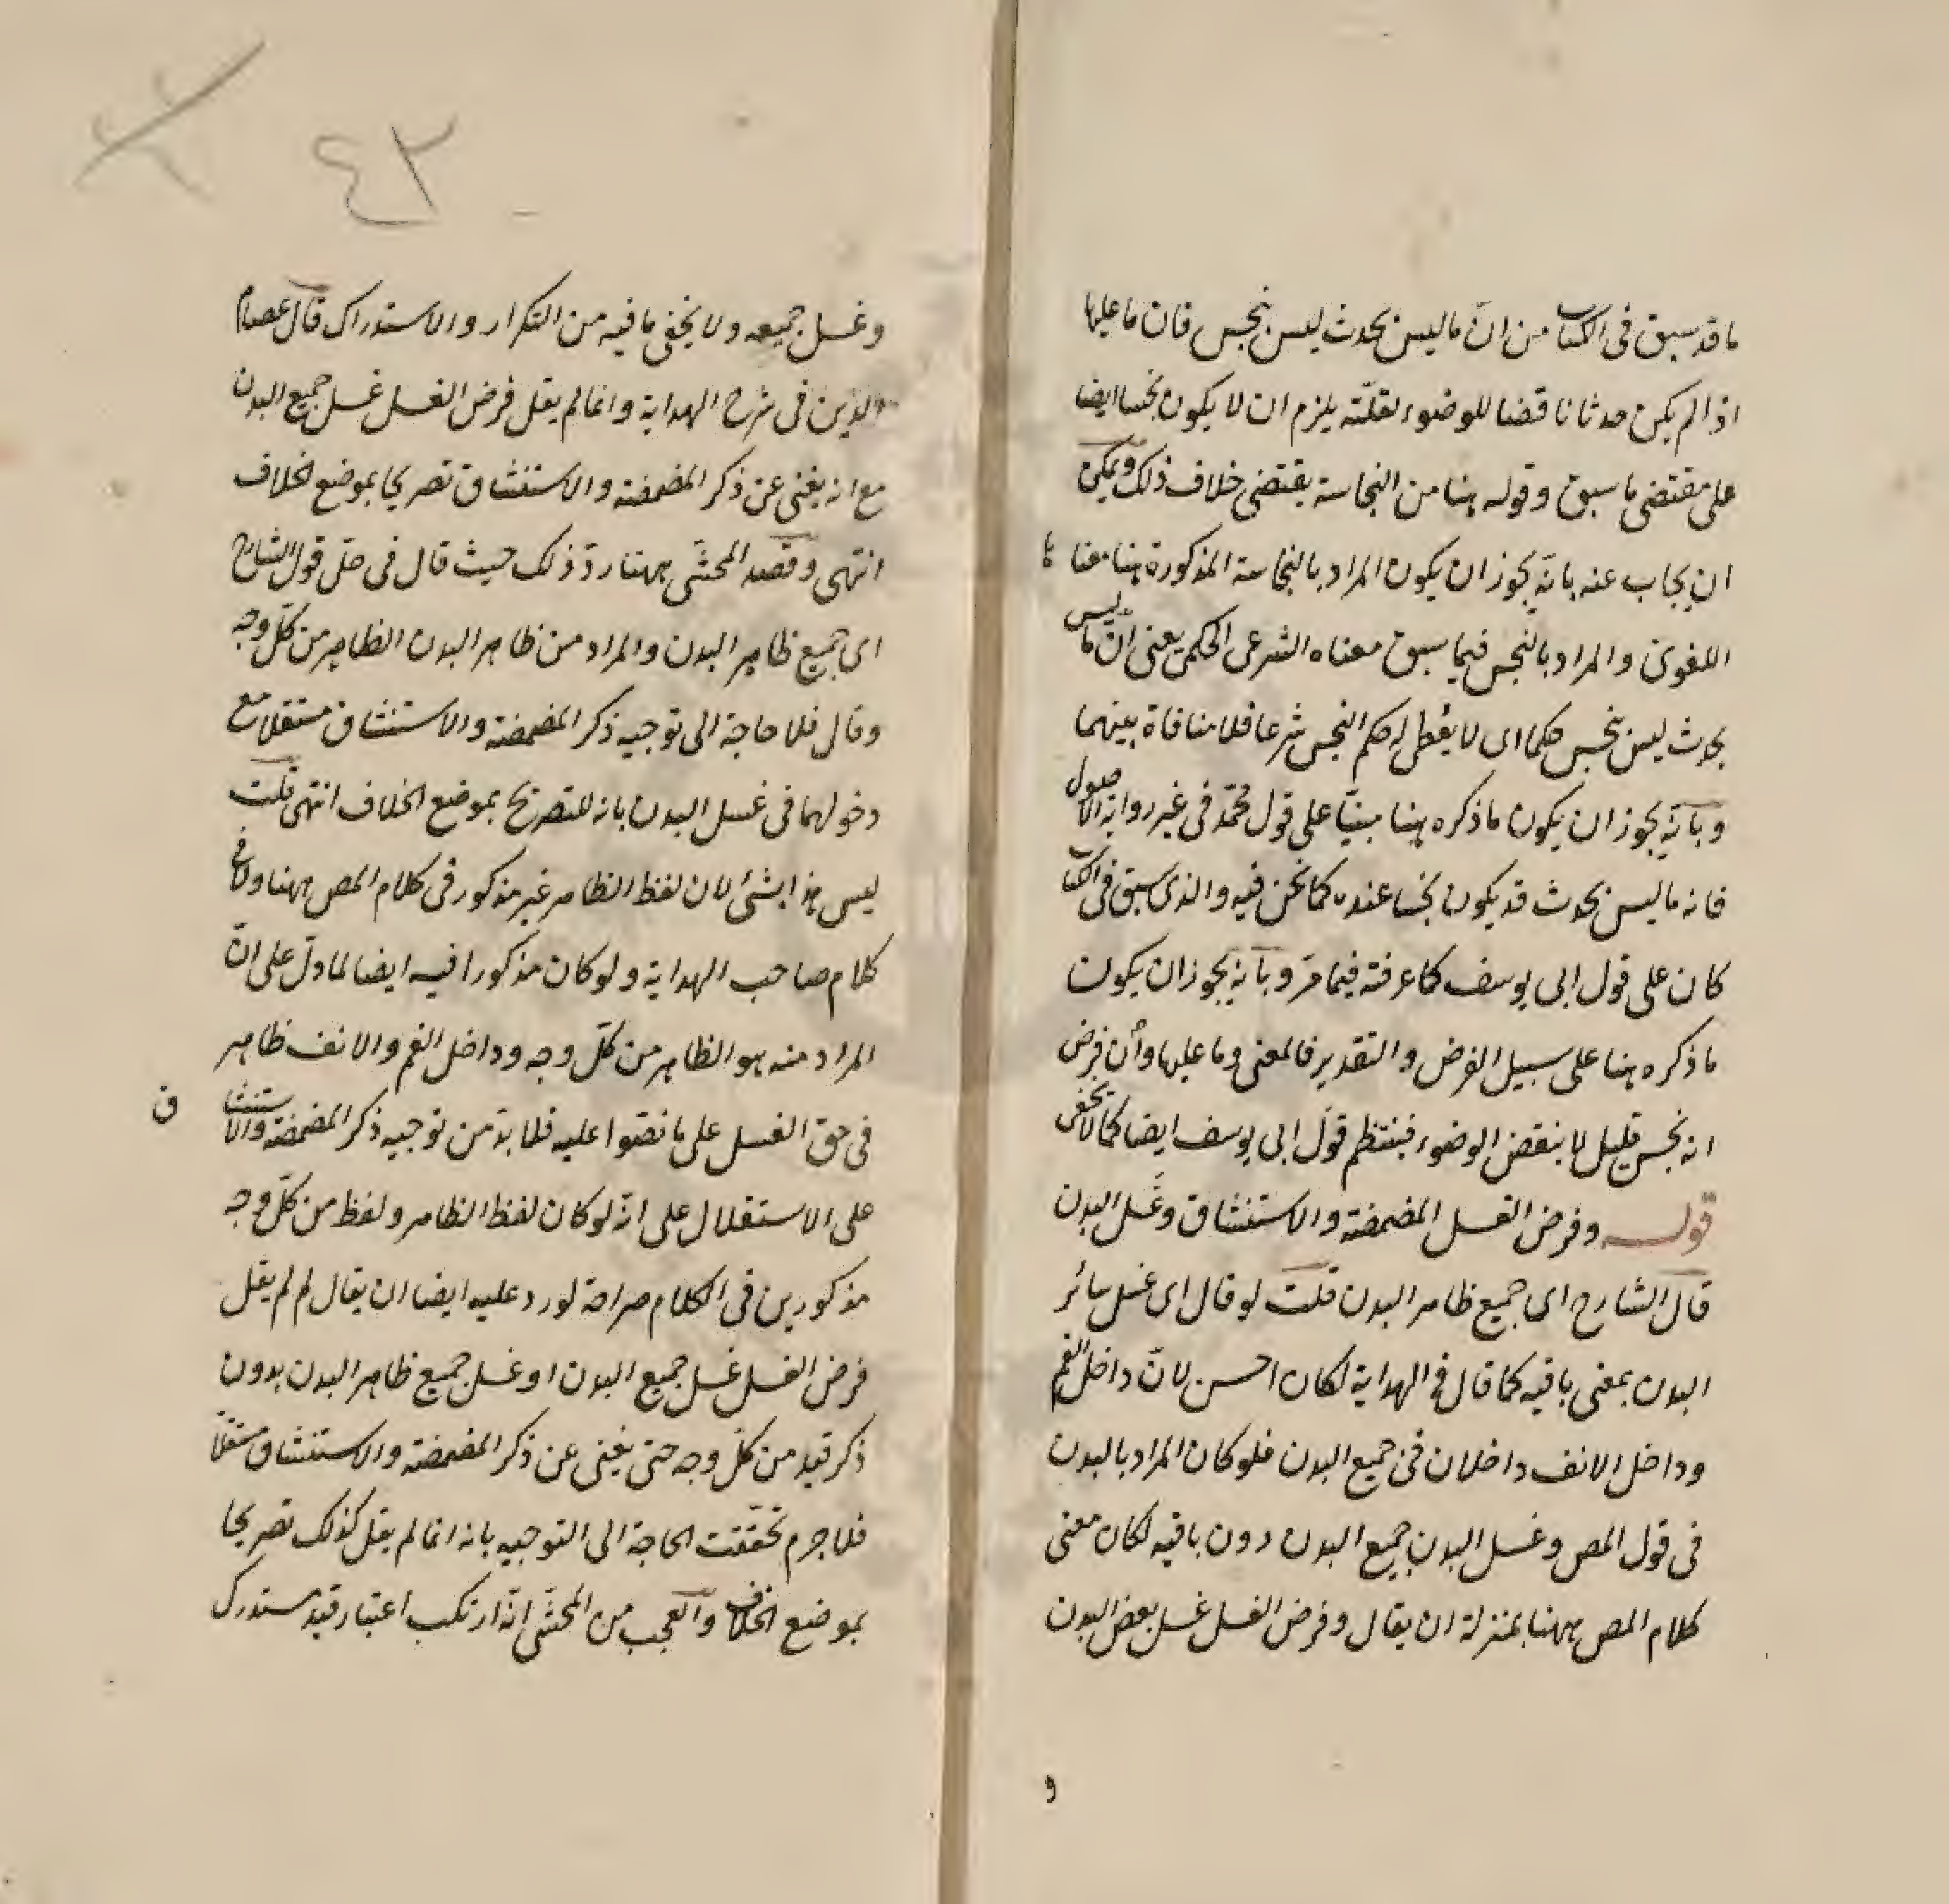 ما قد سبق فى الكتاب من انّ ما ليس بحدث ليس بنجس فان ما عليها
اذا لم يكن حدثا ناقضا للوضوء لقلّته يلزم ان لا يكون نجسا ايضا
على مقتضى ما سبق وقوله هنا من النجاسة يقتضى خلاف ذلك ويمكن
ان يجاب عنه بانّه يجوز ان يكون المراد بالنجاسة المذكورة هنا معناها
اللغوى والمراد بالنجس فيما سبق معناه الشرعى الحكمى يعنى انّ ما ليس
بحدث ليس بنجس حكما اى لا يُعطى له حكم النجس شرعا فلا منافاة بينهما
وبانّه يجوز ان يكون ما ذكره هنا مبنيّا على قول محمّد فى غير رواية الاصول
فانه ما ليس بحدث قد يكون نجسا عنده كما نحن فيه والذى سبق فى الكتاب
كان على قول ابى يوسف كما عرفته فيما مرّ وبانّه يجوز ان يكون
ما ذكره هنا على سبيل الفرض والتقدير فالمعنى وما عليها وأن فرض
انه نجس قليل لا ينقض الوضوء فينتظم قول ابى يوسف ايضا كما لا يخفى
قوله وفرض الغسل المضمضة والاستنشاق وغَسل البدن
قال الشارح اى جميع ظاهر البدن قلت لو قال اى غسل سائر
البدن بمعنى باقيه كما قال فى الهداية لكان احسن لانّ داخل الفم
وداخل الانف داخلان فى جميع البدن فلو كان المراد بالبدن
فى قول المص وغسل البدن جميع البدن دون باقيه لكان معنى
كلام المص ههنا بمنزلة ان يقال وفرض الغسل غسل بعض البدن
و
٤٣
وغسل جميعه ولا يخفى ما فيه من التكرار والاستدراك قال عصام
الدين فى شرح الهداية وانما لم يقل فرض الغسل غسل جميع البدن
مع انه يغنى عن ذكر المضمضة والاستنشاق تصريحا بموضع الخلاف
انتهى وقصد المحشّى ههنا ردّ ذلك حيث قال فى حلّ قول الشارح
اى جميع ظاهر البدن والمراد من ظاهر البدن الظاهر من كلّ وجه
وقال فلا حاجة الى توجيه ذكر المضمضة والاستنشاق مستقلا مع
دخولهما فى غسل البدن بانه للتصريح بموضع الخلاف انتهى قلت
ليس هذا بشئ لان لفظ الظاهر غير مذكور فى كلام المص ههنا ولا فى
كلام صاحب الهداية ولو كان مذكورا فيه ايضا لما دلّ على انّ
المراد منه هو الظاهر من كلّ وجه وداخل الفم والانف ظاهر
فى حق الغسل على ما نصّوا عليه فلا بدّ من توجيه ذكر المضمضة والاستنشاق
على الاستقلال على انّه لو كان لفظ الظاهر ولفظ من كلّ وجه
مذكورين فى الكلام صراحة لورد عليه ايضا ان يقال لم لم يقل
فرض الغسل غسل جميع البدن او غسل جميع ظاهر البدن بدون
ذكر قيد من كلّ وجه حتى يغنى عن ذكر المضمضة والاستنشاق مستقلّا
فلا جرم تحقّقت الحاجة الى التوجيه بانه انما لم يقل كذلك تصريحا
بموضع الخلاف والعجب من المحشّى انّه ارتكب اعتبار قيد مستدرك